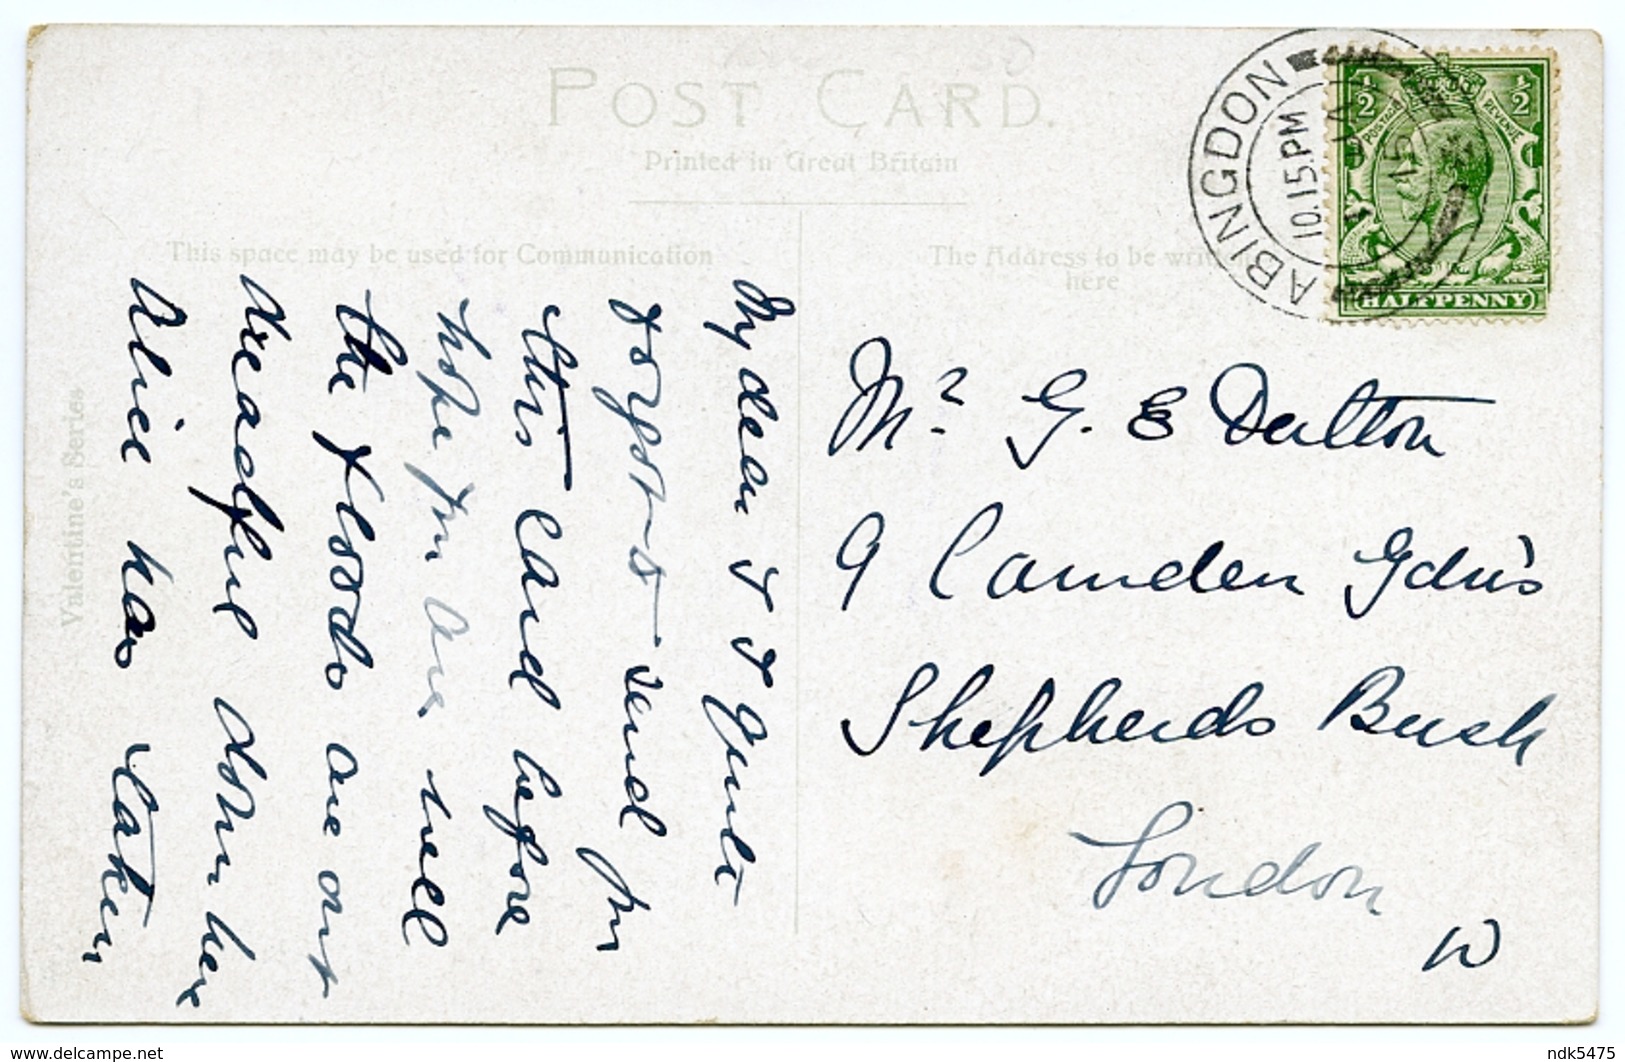 POST CARD.
Printed in Great Britain
This space may be used for Communication
The Address to be written here
Valentine's Series
ABINGDON
10.15 PM
15
½ ½
POSTAGE REVENUE
HALFPENNY
My dear I I quite
forgot to send you
this card before
hope you are well
the floods are out
dreadful down here
Alice has taken
Mr. G. E Dutton
9 Camden Gdns
Shepherds Bush
London
W
delcampe.net
ndk5475